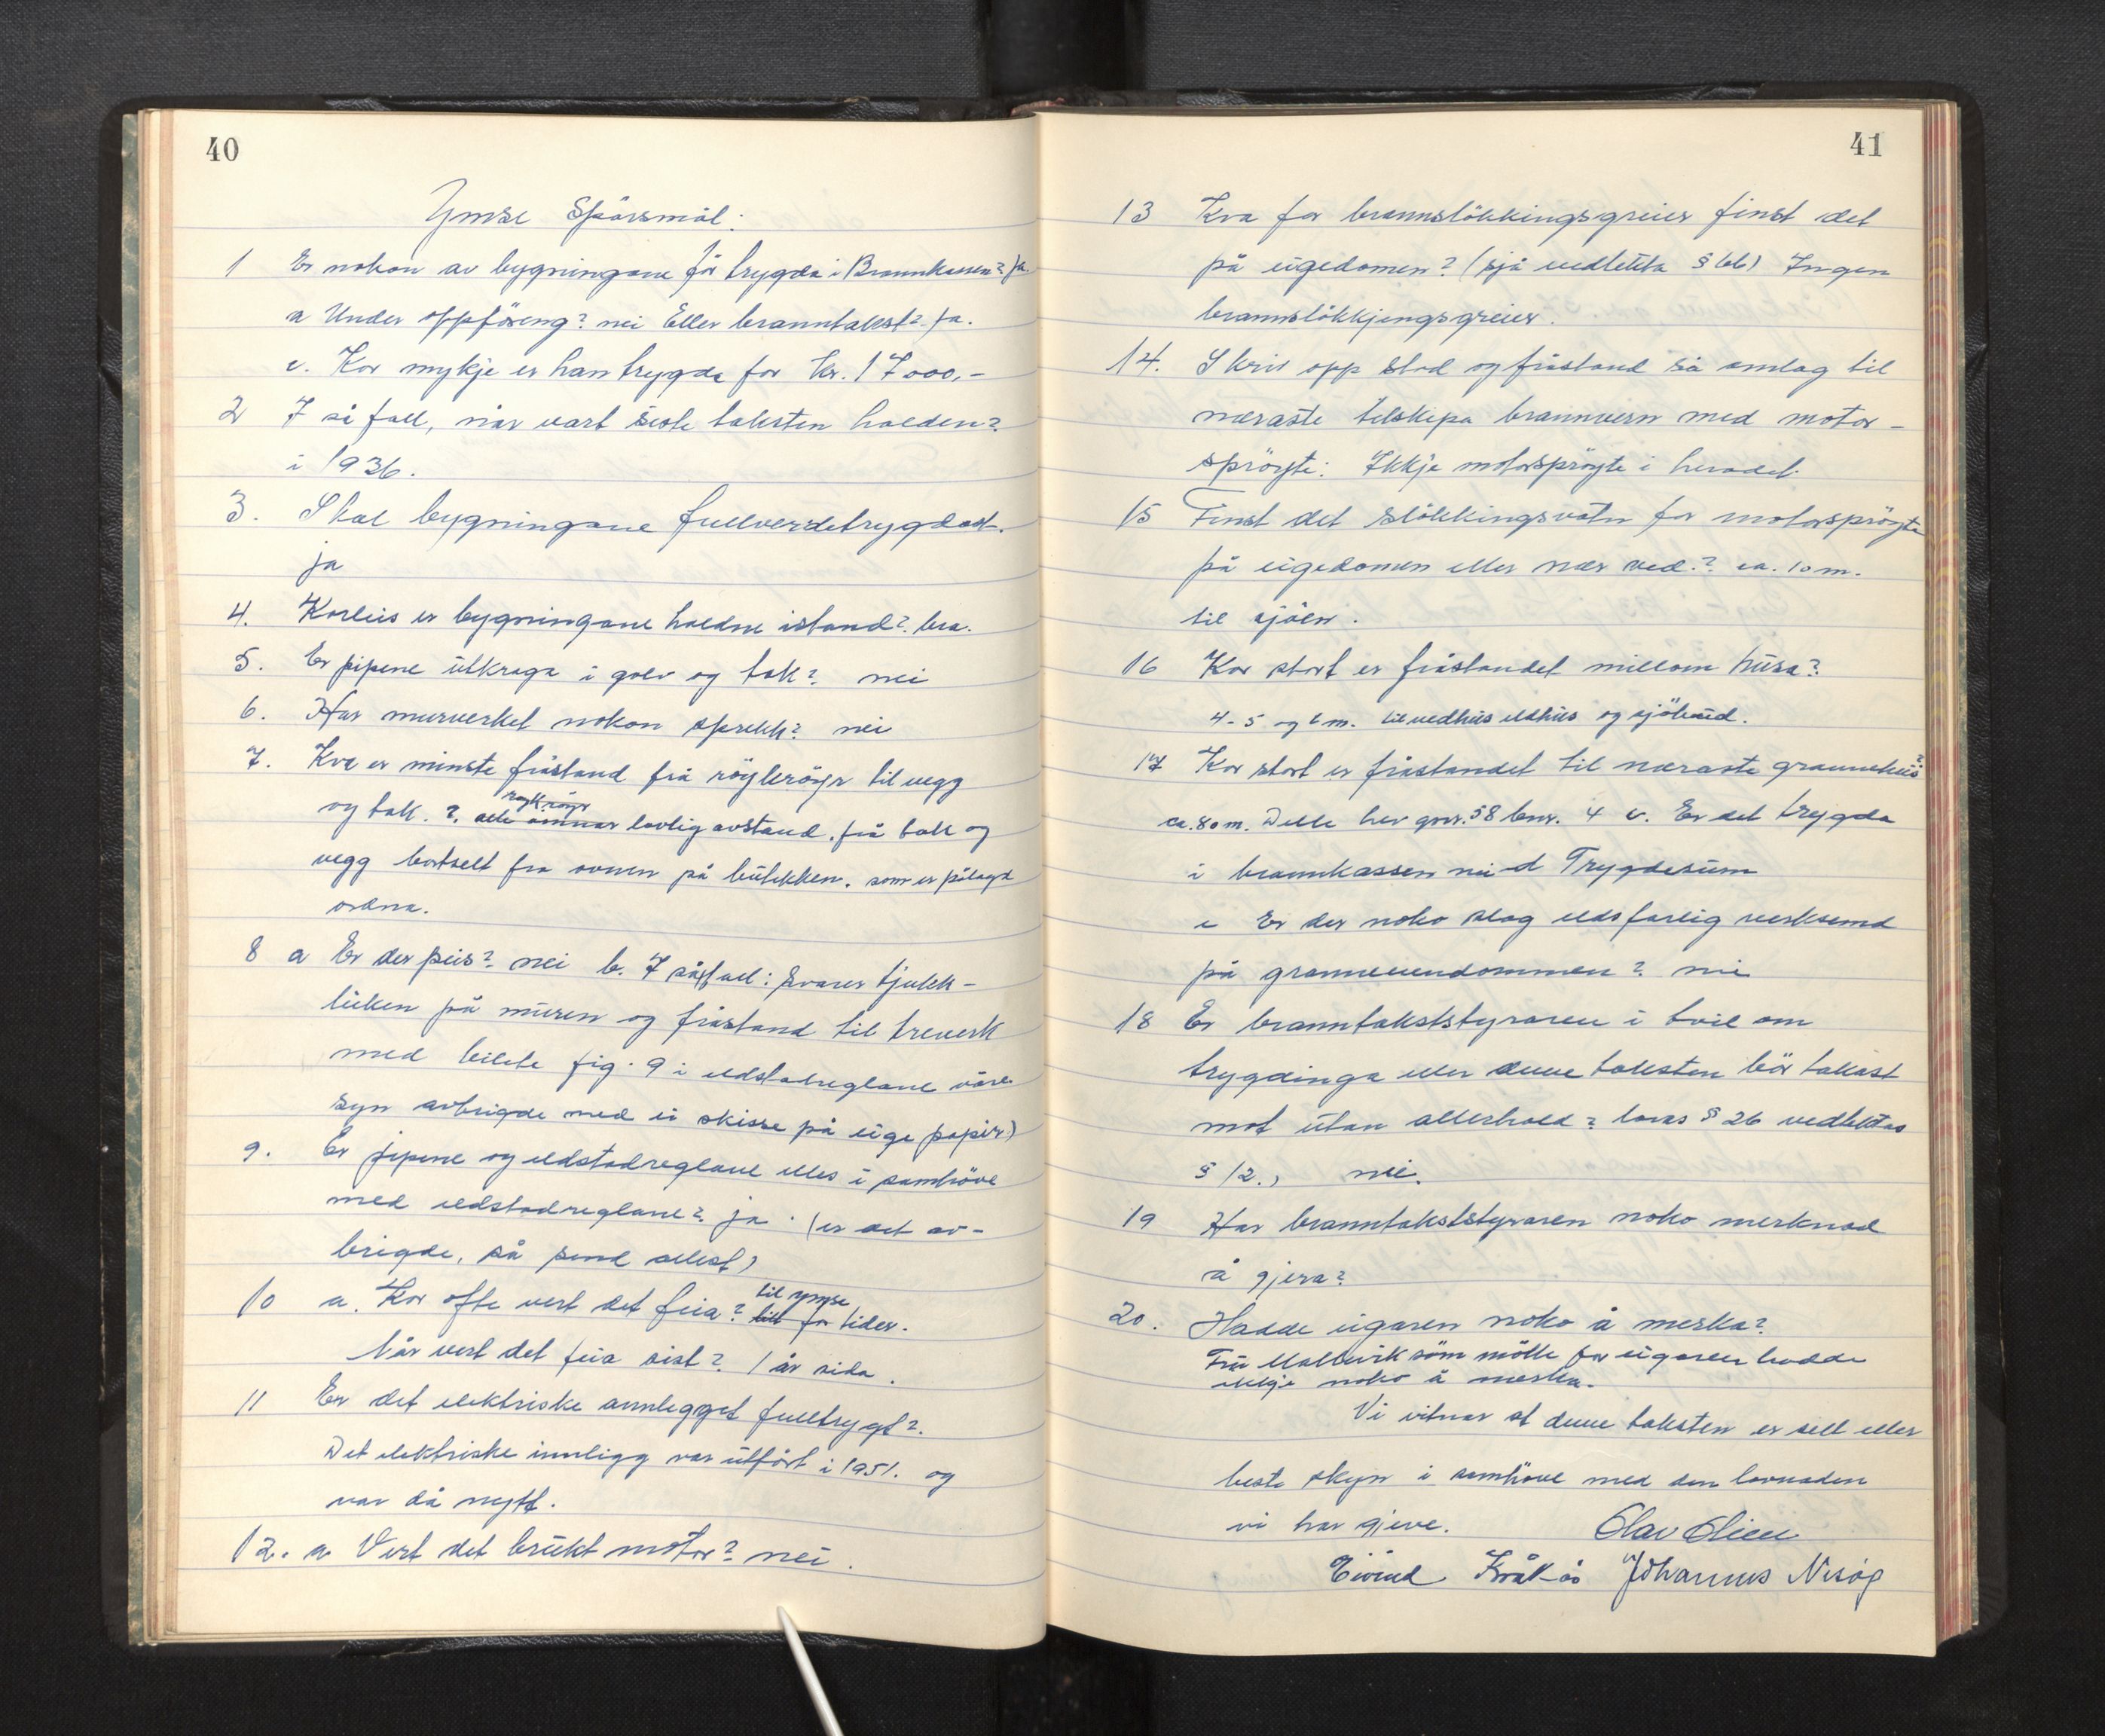 40
Ymse Spörsmål:
1 Er nokon av bygningane för trygda i Brannkassen? ja.
a Under oppföreng? nei Eller branntakst? ja.
c. Kor mykje er han trygda for kr. 17000,-
2 I så fall, når vart siste taksten halden?
i 1936.
3. Skal bygningane fullverdetrygdast.
ja
4. Korleis er bygningane haldne istand? bra.
5. Er pipene utkraga i golv og tak? nei
6. Har murverket nokon sprekk? nei
7. Kva er minste fråstand frå röykröyr til vegg
og tak. ? alle omnar röykröyr lovlig avstand frå tak og
vegg bortsett fra ovnen på butikken. som er pålagd
ordna.
8 a Er der peis? nei b. I såfall: svarer tjukk-
leiken på muren og fråstand til treverk
med bilete fig. 9 i eldstadreglane våre
syn avbrigde med ei skisse på eige papir)
9. Er pipene og eldstadreglane elles i samhöve
med eldstadreglane? ja. (er det av-
brigde, så send attest)
10 a. Kor ofte vert det feia? til ymse tider.
Når vert det feia sist? 1 år sida.
11 Er det elektriske annlegget fulltrygt?
Det elektriske innligg var utfört i 1951. og
var då nytt.
12. a Vert det brukt motor? nei.
41
13 Kva for brannslökkingsgreier finst det
på eigedomen? (sjå vedtekta § 66) Ingen
brannslökkjengsgreier.
14. Skriv opp stad og fråstand så omlag til
næraste tilskipa brannvern med motor-
spröyte: Ikkje motorspröyte i heradet.
15 Finst det slökkingsvatn for motorspröyte
på eigedomen eller nær ved.? ca. 10 m.
til sjöen.
16 Kor stort er fråstandet millom husa?
4-5 og 6 m. til vedhus eldhus og sjöbud.
17 Kor stort er fråstandet til næraste grannehus?
ca. 80 m. Dette hev gnr. 58 bnr. 4 c. Er det trygda
i brannkassen nei d Trygdesum
e Er der noko slag eldsfarlig verksemd
på granneeiendommen? nei
18 Er branntakststyraren i tvil om
trygdinga eller denne taksten bör takast
mot utan atterhald? lovas § 26 vedtektas
§ 12., nei.
19 Har branntakststyraren noko merknad
å gjera?
20. Hadde eigaren noko å merka?
Fru som mötte for eigaren hadde
ikkje noko å merka.
Vi vitnar at denne taksten er sett etter
beste skyn i samhöve med den lovnaden
vi har gjeve. Olav
Eivind Johannes